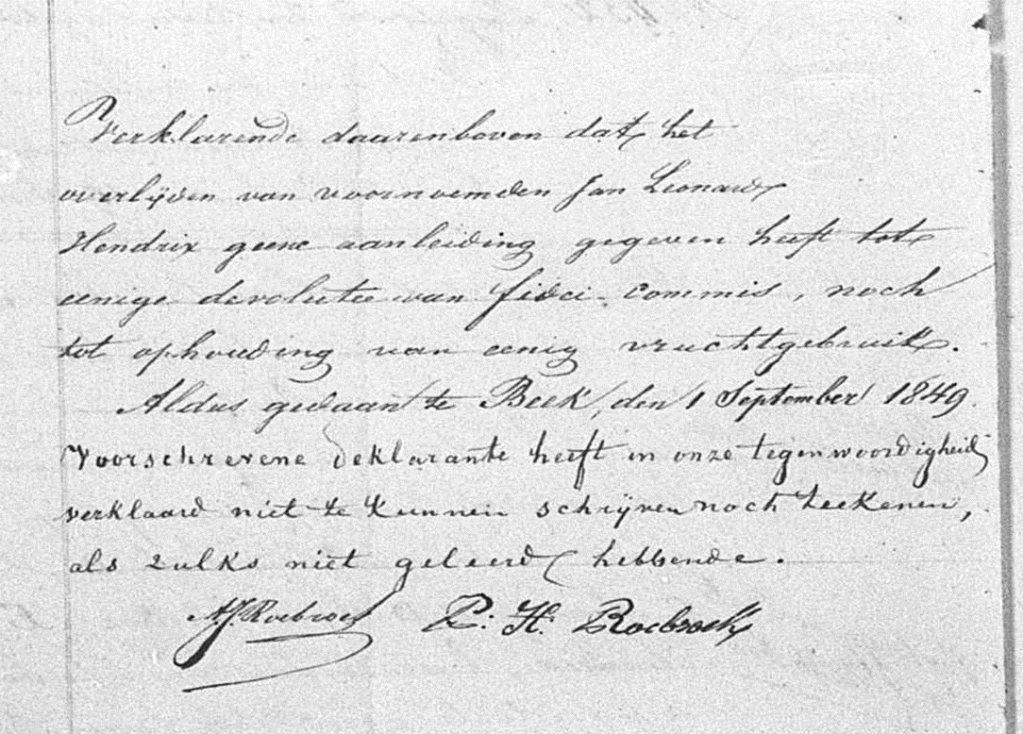 Verklarende daarenboven dat het
overlijden van voornoemden Jan Leonard
Hendrix geene aanleiding gegeven heeft tot
eenige devolutie van fidei-commis, noch
tot ophouding van eenig vruchtgebruik.
Aldus gedaan te Beek, den 1 September 1849.
Voorschrevene deklarante heeft in onze tegenwoordigheid
verklaard niet te kunnen schrijven noch teekenen,
als zulks niet geleerd hebbende.
AJ Roebroek P: H: Roebroek